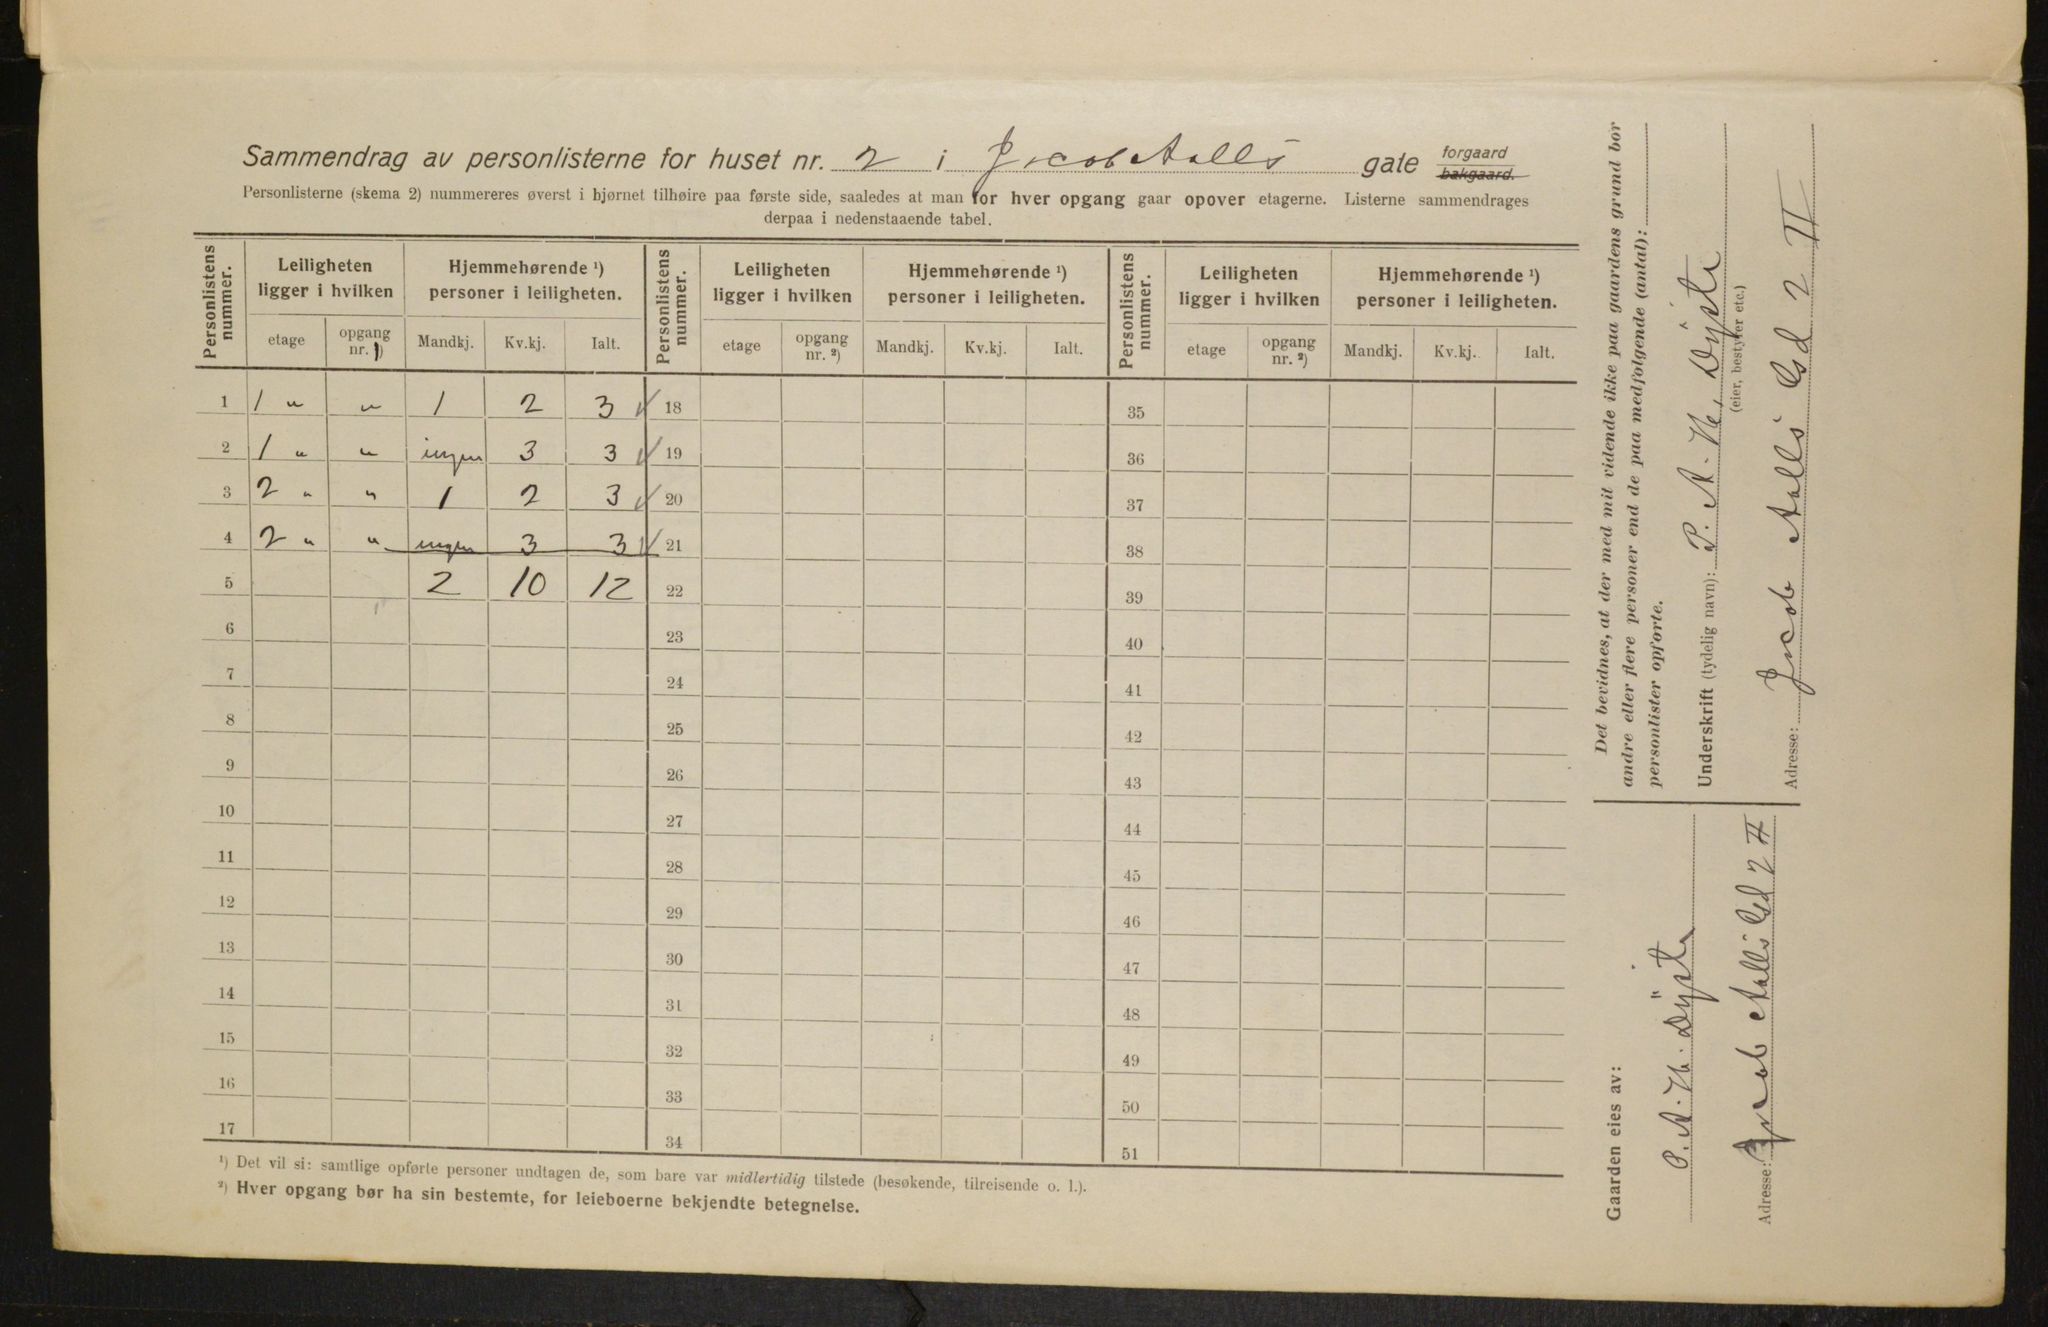 Sammendrag av personlisterne for huset nr. 2 i Jacob Aalls gate forgaard bakgaard.
Personlisterne (skema 2) nummereres øverst i hjørnet tilhøire paa første side, saaledes at man for hver opgang gaar opover etagerne. Listerne sammendrages
derpaa i nedenstaaende tabel.
Personlistens nummer. Leiligheten ligger i hvilken Hjemmehørende ¹) personer i leiligheten. Personlistens nummer. Leiligheten ligger i hvilken Hjemmehørende ¹) personer i leiligheten. Personlistens nummer. Leiligheten ligger i hvilken Hjemmehørende ¹) personer i leiligheten.
etage opgang nr. ²) Mandkj. Kv.kj. Ialt. etage opgang nr. ²) Mandkj. Kv.kj. Ialt. etage opgang nr. ²) Mandkj. Kv.kj. Ialt.
1 1 " " 1 2 3 ✓ 18 35
2 1 " " ingen 3 3 ✓ 19 36
3 2 " " 1 2 3 ✓ 20 37
4 2 " " ingen 3 3 ✓ 21 38
5 2 10 12 22 39
6 23 40
7 24 41
8 25 42
9 26 43
10 27 44
11 28 45
12 29 46
13 30 47
14 31 48
15 32 49
16 33 50
17 34 51
¹) Det vil si: samtlige opførte personer undtagen de, som bare var midlertidig tilstede (besøkende, tilreisende o. l.).
²) Hver opgang bør ha sin bestemte, for leieboerne bekjendte betegnelse.
Det bevidnes, at der med mit vidende ikke paa gaardens grund bor
andre eller flere personer end de paa medfølgende (antal):
personlister opførte.
Underskrift (tydelig navn): P. A. H. Dyste
(eier, bestyrer etc.)
Adresse: Jacob Aalls Gd 2 II
Gaarden eies av:
P. A. H. Dyste
Adresse: Jacob Aalls Gd 2 II